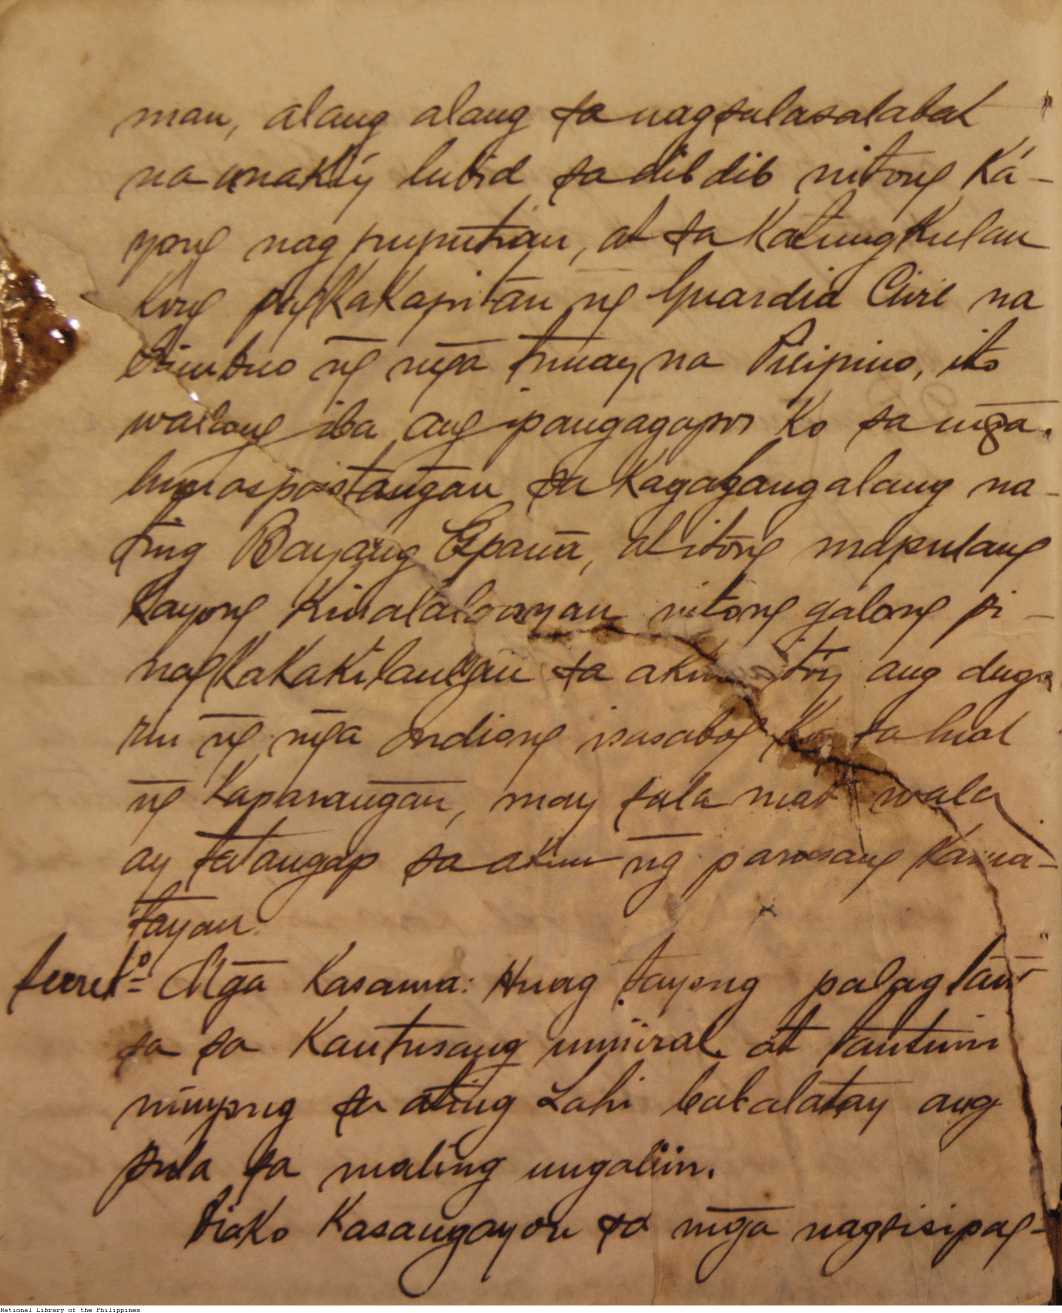 man, alang alang sa nagsalasalabat
na anaki'y lubid sa dibdib nitong Ká-
yong nagpuputian, at sa Katungkulan
kong pagkakapitan ng Guardia Civil na
binubuo ñg mḡa tunay na Pilipino, ito
walang iba ang ipangagapos Ko sa mḡa
lumapastañgan sa Kagalanggalang na-
ting Bayang España, at itong mapulang
kayong Kinalalagayan nitong galong pi-
nagkakakilanlan sa akin ang dugo
ñg mḡa indiong isasabog Ko sa
ñg Kaparañgan, may sala mat wala
ay tatangap sa akin ñg parusang Kama-
tayan.
Secretº Mḡa Kasama: Huag tayong palag
sa sa Kautusang at tantuin
ninyong sa ating Lahi babalatay ang
pula sa maling ugaliin.
Diako Kasangayon sa mḡa nagsisipag-
National Library of the Philippines